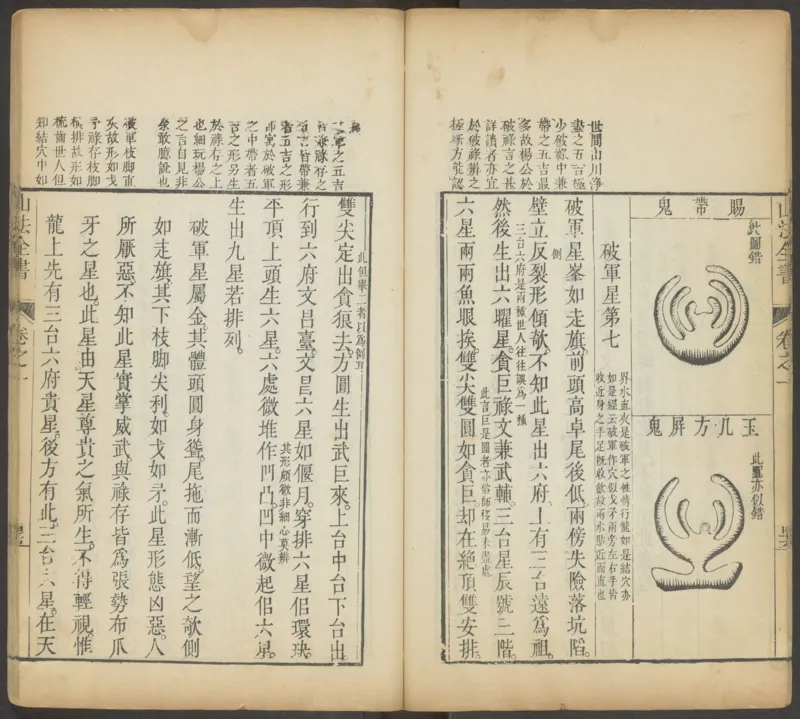 賜帶鬼
此圖錯
玉几方屏鬼
此圖亦似錯
世間山川淨
盡之五吉極
少破祿中兼
帶之五吉最
多故楊公於
破祿言之甚
詳讀者亦宜
於破祿辨之
極晰方能認
破軍星第七
界水直夾是破軍之性情行龍如是結穴亦
如是經云破軍作穴似戈矛兩旁左右手皆
收近身之手足旣收斂故兩水貼近而直也
破軍星峯如走旗前頭高卓尾後低兩傍失險落坑陷
壁立側反裂形傾欹不知此星出六府上有三台遠爲祖
三台六府是兩種世人往往誤爲一種
然後生出六曜星貪巨祿文兼武輔三台星辰號三階
此言巨是圓者亦俗師移易未盡處
六星兩兩魚眼挨雙尖雙圓如貪巨却在絶頂雙安排
二軍之五吉
祿存之
帶兼
者五吉之形
卽寓於破軍
之中帶者五
吉之形另生
於祿存之上
也細玩楊公
之言自見非
余敢臆說也
破軍枝脚直
尖故形如戈
矛祿存枝脚
橫排故形如
梳齒世人但
知結穴中如
此但舉二者以爲例耳
雙尖定出貪狼去方圓生出武巨來上台中台下台出
行到六府文昌臺文昌六星如偃月穿排六星佀環玦
其形頗微非細心莫辨
平頂上頭生六星六處微堆作凹凸凹中微起佀六星
生出九星若排列
破軍星屬金其體頭圓身聳尾拖而漸低望之欹側
如走旗其下枝脚尖利如戈如矛此星形態凶惡人
所厭惡不知此星實掌威武與祿存皆爲張勢布爪
牙之星也此星由天星尊貴之氣所生不得輕視惟
龍上先有三台六府貴星後方有此三台六星在天
山法全書
卷之一
山法全書
卷之一